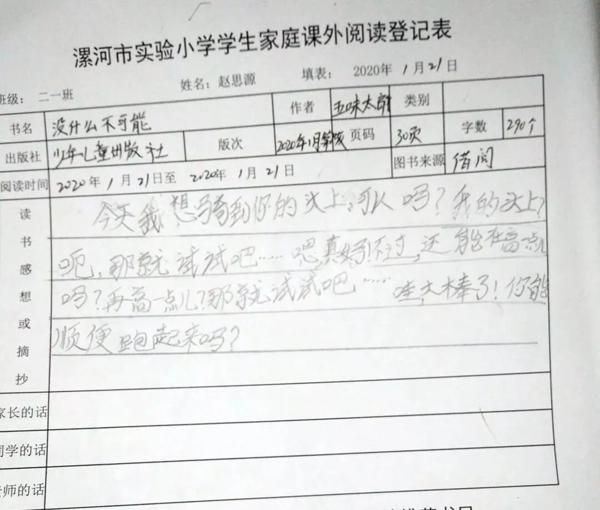 漯河市实验小学学生家庭课外阅读登记表
班级： 二一班 姓名：赵思源 填表： 2020年 1月21日
书名 没什么不可能 作者 五味太郎 类别
出版社 少年儿童出版社 版次 2020年1月第版 页码 30页 字数 290个
阅读时间 2020年1月21日至 2020年1月21日 图书来源 借阅
读书感想或摘抄
今天我想骑到你的头上,可以吗？我的头上？
呃,那就试试吧……嗯真好不过,还能在高点儿
吗？再高一点儿？那就试试吧…… 哇,太棒了！你能
顺便跑起来吗？
家长的话
同学的话
老师的话